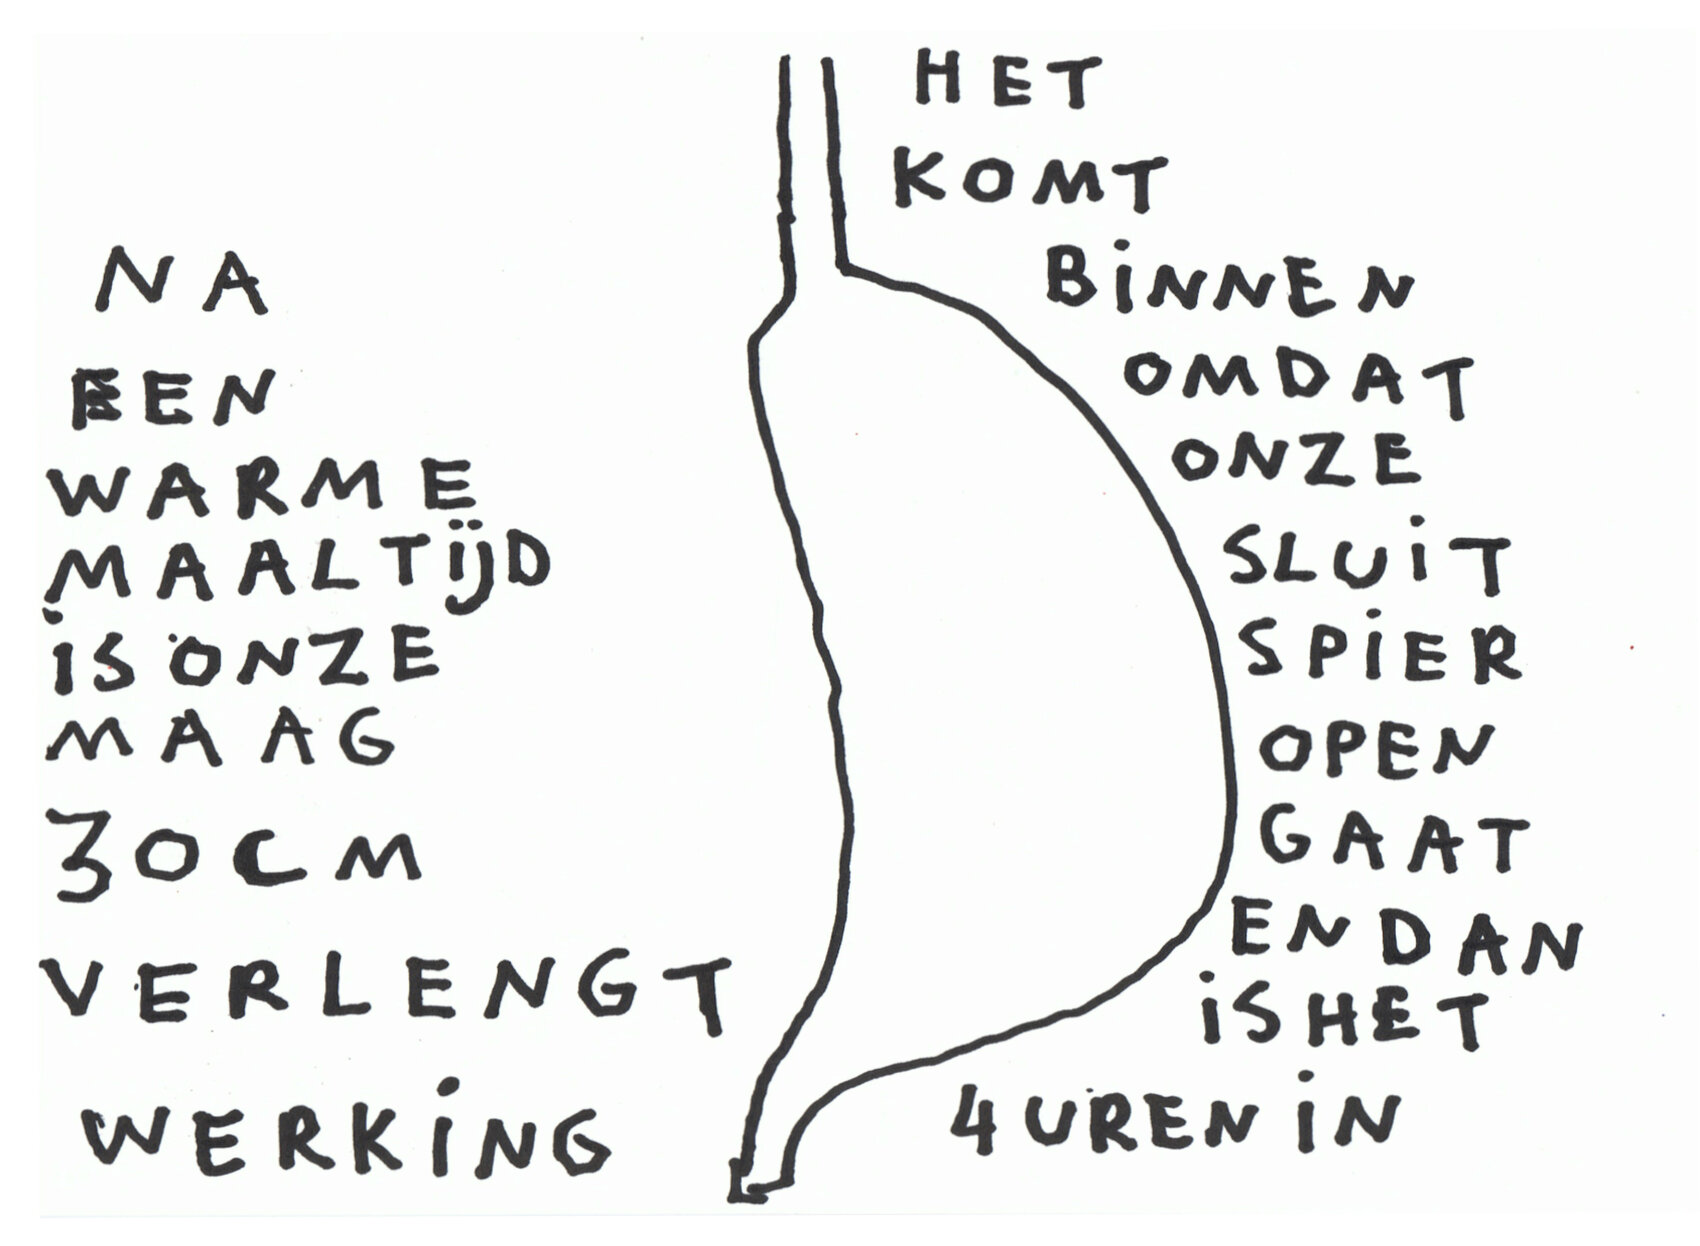 NA
EEN
WARME
MAALTIJD
IS ONZE
MAAG
30CM
VERLENGT
WERKING
HET
KOMT
BINNEN
OMDAT
ONZE
SLUIT
SPIER
OPEN
GAAT
EN DAN
IS HET
4 UREN IN